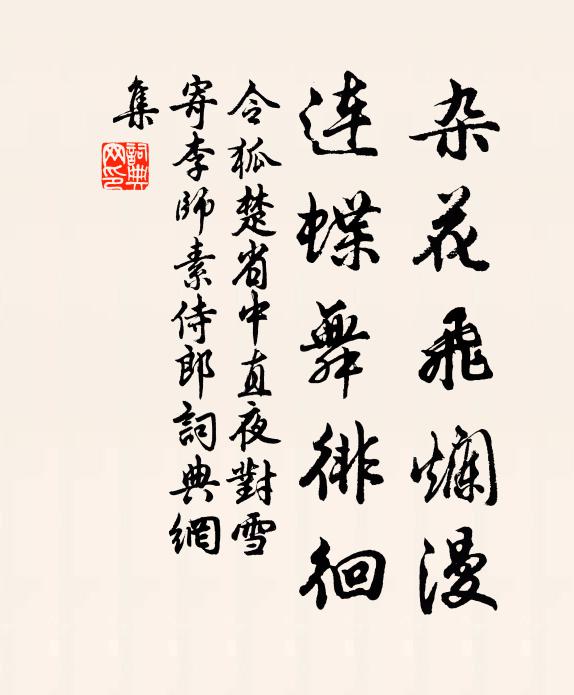 杂花飛爛漫
連蝶舞徘徊
令狐楚省中直夜對雪
寄李師素侍郎詞典網
集
詞典網印